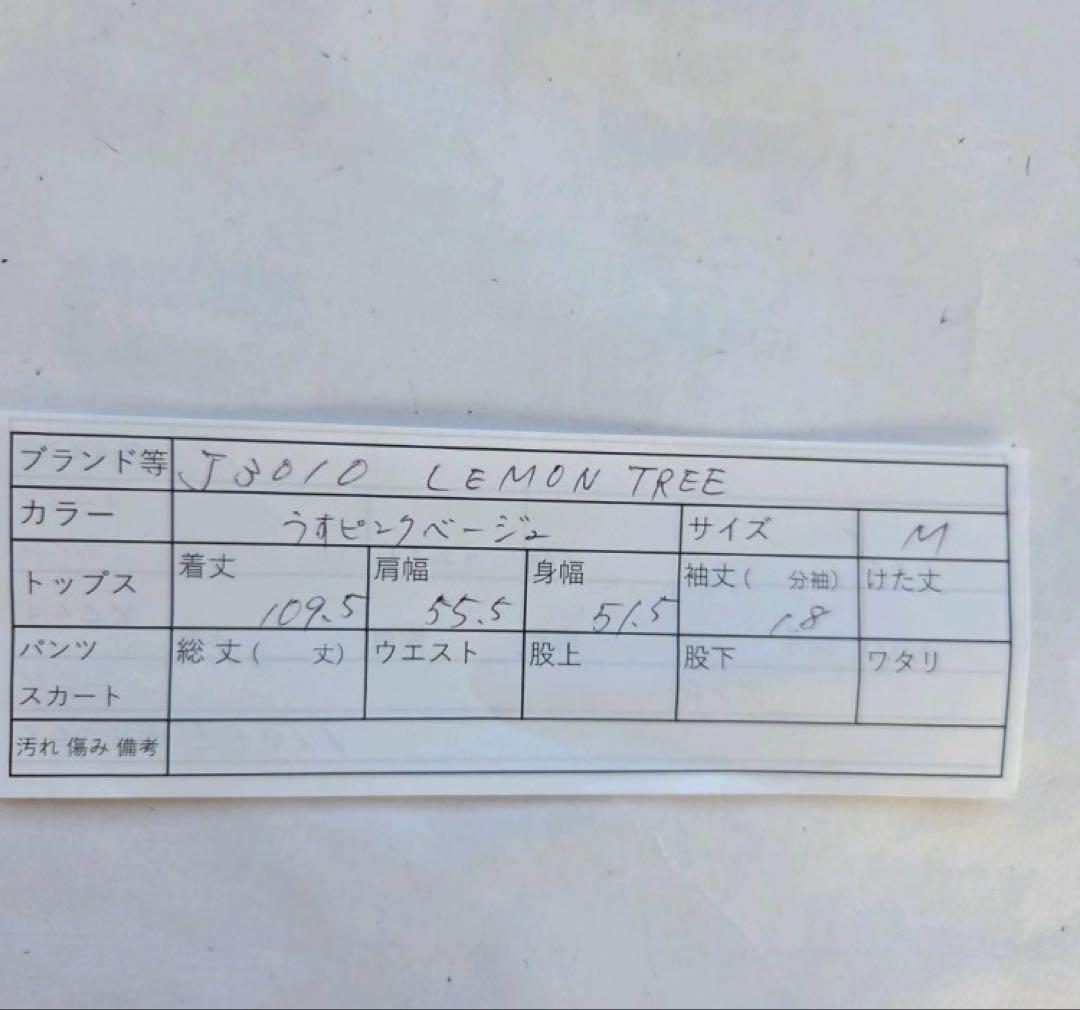 ブランド等 J3010 LEMON TREE
カラー うすピンクベージュ サイズ M
トップス 着丈 109.5 肩幅 55.5 身幅 51.5 袖丈( 分袖) 18 けた丈
パンツ スカート 総丈( 丈) ウエスト 股上 股下 ワタリ
汚れ 傷み 備考